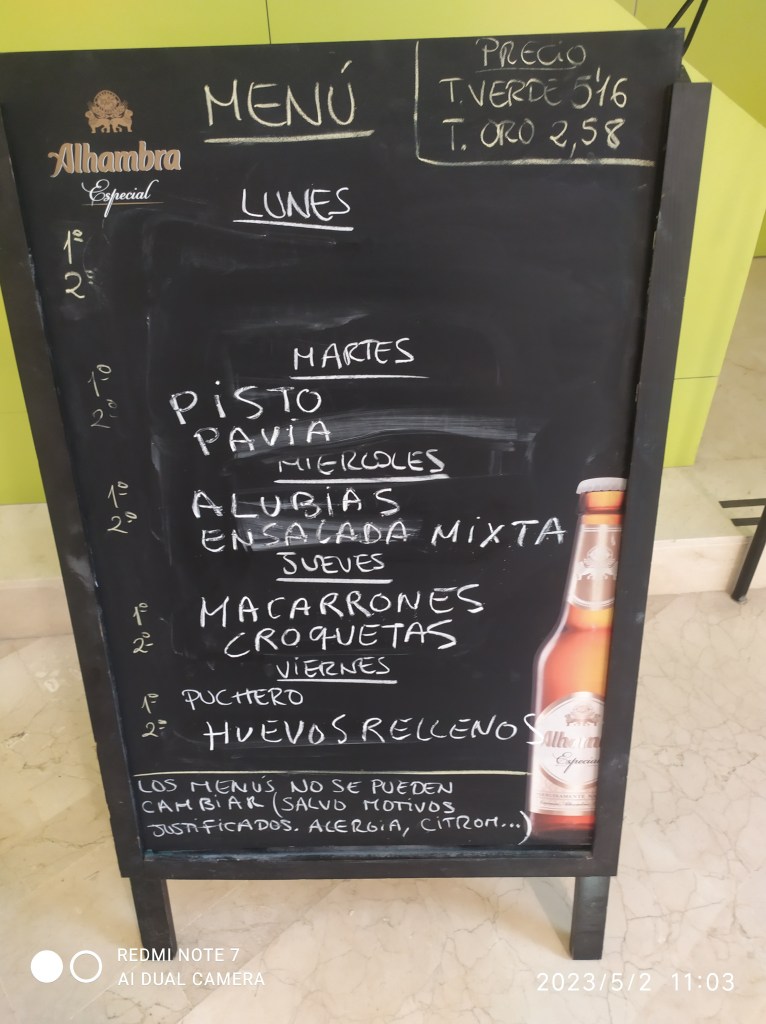 MENÚ
PRECIO
T. VERDE 5'16
T. ORO 2,58
Alhambra
Especial
LUNES
1º
2º
MARTES
1º PISTO
2º PAVIA
MIERCOLES
1º ALUBIAS
2º ENSALADA MIXTA
JUEVES
1º MACARRONES
2º CROQUETAS
VIERNES
1º PUCHERO
2º HUEVOS RELLENOS
Alhambra
Especial
LOS MENÚS NO SE PUEDEN
CAMBIAR (SALVO MOTIVOS
JUSTIFICADOS. ALERGIA, CITROM...)
REDMI NOTE 7
AI DUAL CAMERA
2023/5/2 11:03